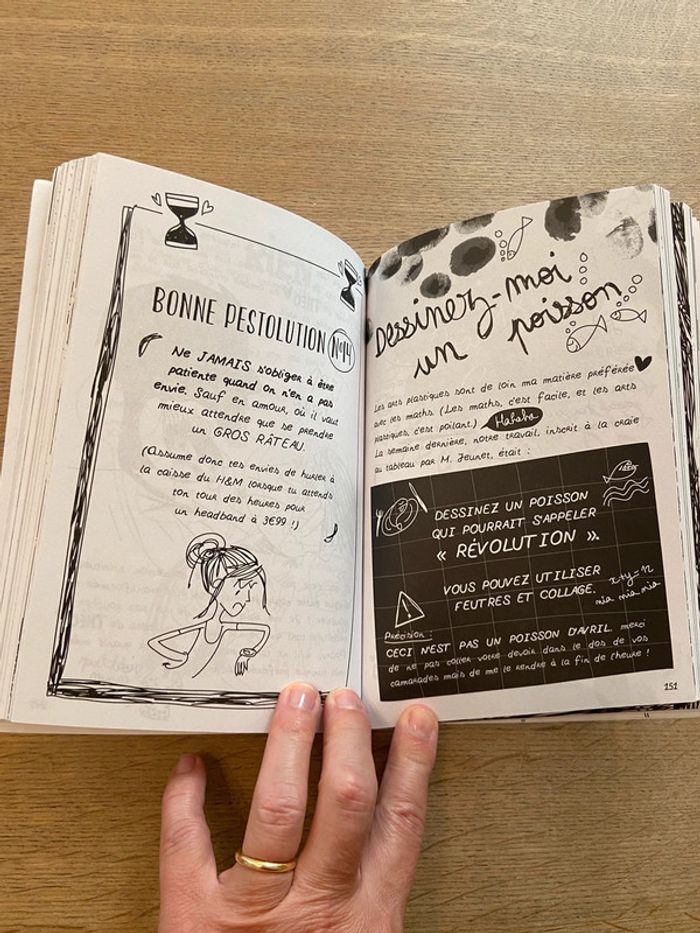 BONNE PESTOLUTION N°14
Ne JAMAIS s'obliger à être
patiente quand on n'en a pas
envie. Sauf en amour, où il vaut
mieux attendre que se prendre
un GROS RÂTEAU.
(Assume donc tes envies de hurler à
la caisse du H&M lorsque tu attends
ton tour des heures pour
un headband à 3€99 !)
Dessinez-moi
un poisson
Les arts plastiques sont de loin ma matière préférée
avec les maths. (Les maths, c'est facile, et les arts
plastiques, c'est poilant.) Hahaha
La semaine dernière, notre travail, inscrit à la craie
au tableau par M. Jeunet, était :
DESSINEZ UN POISSON
QUI POURRAIT S'APPELER
« RÉVOLUTION ».
VOUS POUVEZ UTILISER
FEUTRES ET COLLAGE.
x+y=n
mia mia mia
Précision :
CECI N'EST PAS UN POISSON D'AVRIL, merci
de ne pas coller votre devoir dans le dos de vos
camarades mais de me le rendre à la fin de l'heure !
151